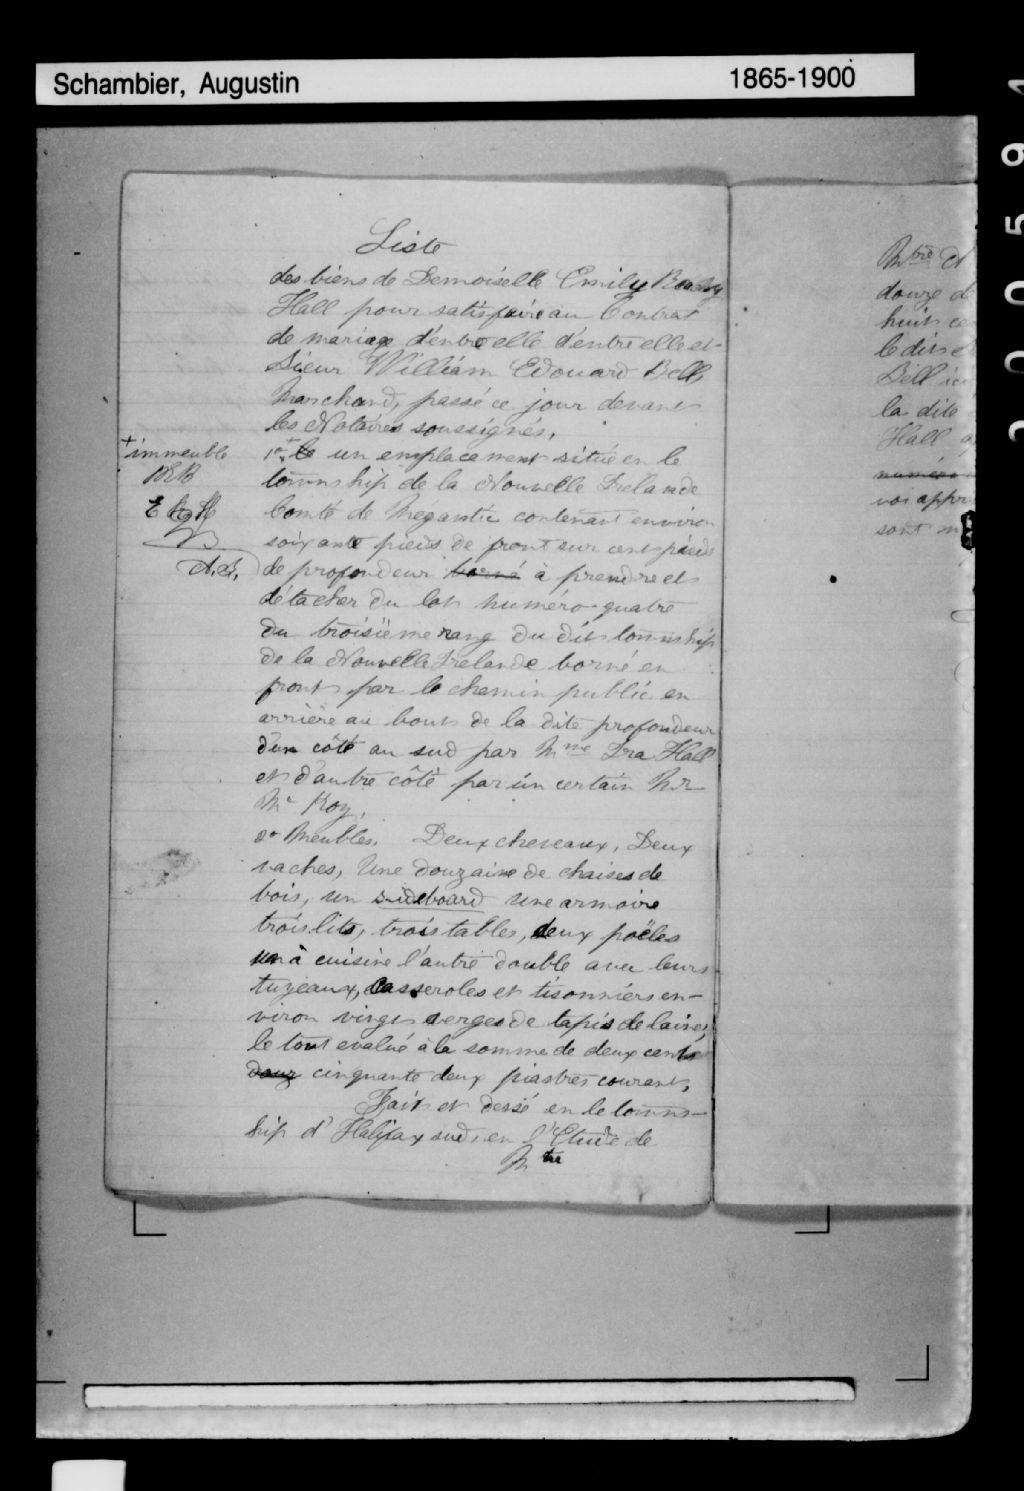 Schambier, Augustin 1865-1900
Liste
des biens de Demoiselle Emily
Hall pour satisfaire au Contrat
de mariage d'entre elle d'entre elle et
Sieur William Edouard Bell
Marchand, passé ce jour devant
les Notaires soussignés,
+ immeuble
1o + le un emplacement situé en le
township de la Nouvelle Irelande
Comté de Megantic contenant environ
soixante pieds de front sur cent pieds
A.S.
de profondeur borné à prendre et
détacher du lot numéro quatre
du troisième rang du dit township
de la Nouvelle Irelande borné en
front par le chemin public en
arrière au bout de la dite profondeur
d'un côté au sud par Mme Ira Hall
et d'autre côté par un certain Mr
Mc Roy,
2o Meubles. Deux chevaux, Deux
vaches, Une douzaine de chaises de
bois, un sideboard une armoire
trois lits, trois tables, deux poëles
un à cuisine l'autre double avec leurs
tuyeaux, Casseroles et tisonniers en-
viron vingt verges de tapis de laine,
le tout evalué à la somme de deux cents
douz cinquante deux piastres courant,
Fait et dessé en le towns-
hip d'Halifax sud, en l'Etude de
Mtre
Mtre A
douze d
huit ce
le dit s
Bell ic
la dite
Hall a
numéro
voi appr
sont m
200591